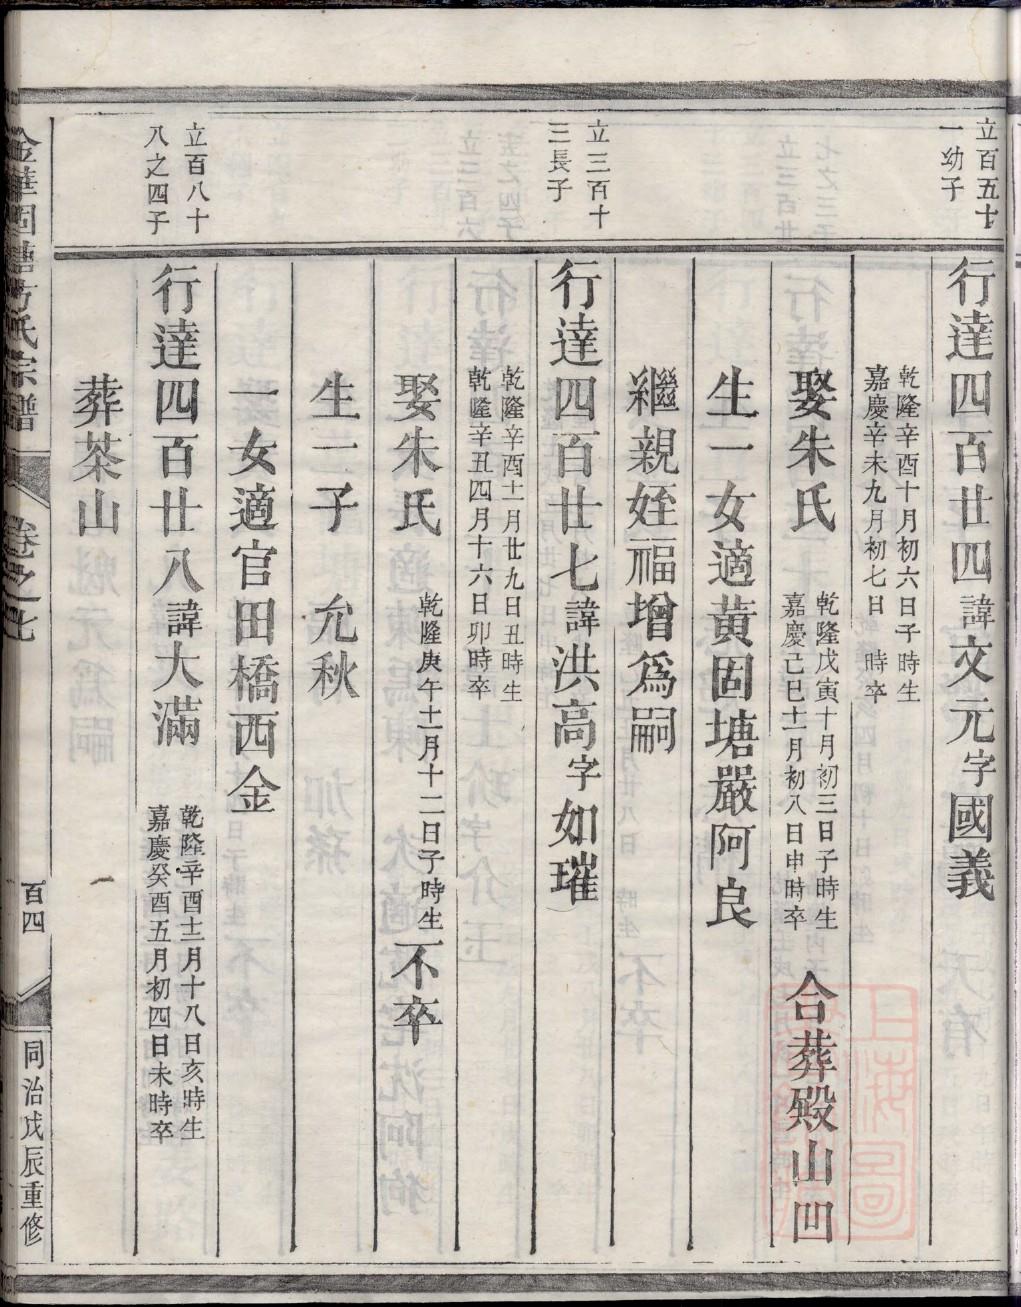 立百五十
一幼子
行達四百廿四諱文元字國義
乾隆辛酉十月初六日子時生
嘉慶辛未九月初七日 時卒
娶朱氏
乾隆戊寅十月初三日子時生
嘉慶己巳十一月初八日申時卒
合葬殿山凹
生一女適黃固塘嚴阿良
繼親姪福增爲嗣
立三百十
三長子
行達四百廿七諱洪高字如璀
乾隆辛酉十一月廿九日丑時生
乾隆辛丑四月十六日卯時卒
娶朱氏
乾隆庚午十一月十二日子時生
不卒
生一子 允秋
一女適官田橋西金
立百八十
八之四子
行達四百廿八諱大滿
乾隆辛酉十二月十八日亥時生
嘉慶癸酉五月初四日未時卒
葬茶山
卷之七
百四
同治戊辰重修
上海圖